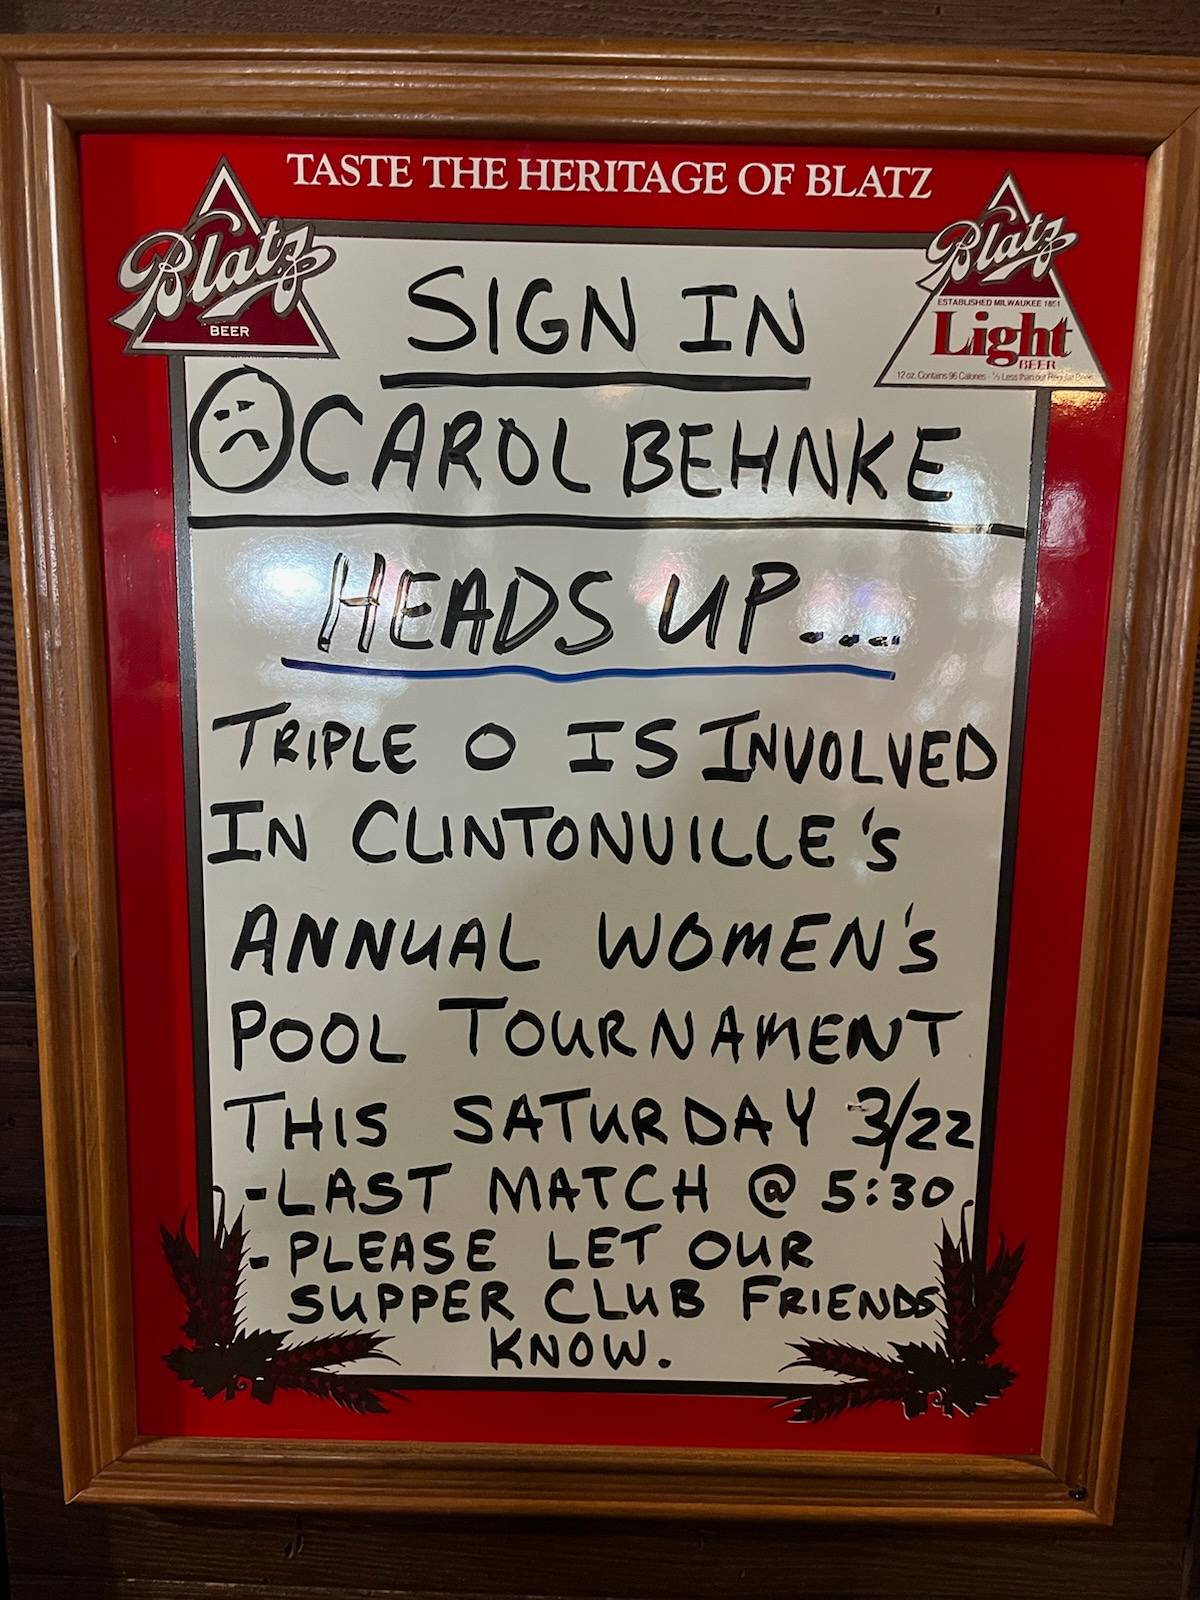 TASTE THE HERITAGE OF BLATZ
Blatz
BEER
Blatz
ESTABLISHED MILWAUKEE 1851
Light
BEER
12 oz. Contains 96 Calories - ⅓ Less than our Regular Beer.
SIGN IN
CAROL BEHNKE
HEADS UP....
TRIPLE O IS INVOLVED
IN CLINTONVILLE'S
ANNUAL WOMEN'S
POOL TOURNAMENT
THIS SATURDAY 3/22
-LAST MATCH @ 5:30.
- PLEASE LET OUR
SUPPER CLUB FRIENDS
KNOW.